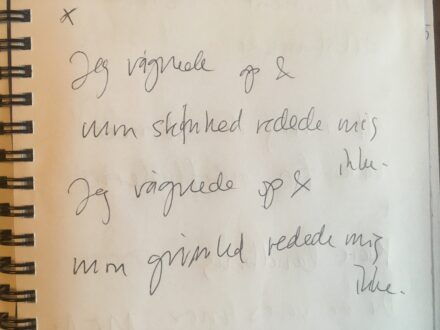 x
Jeg vågnede op &
min skønhed redede mig
ikke.
Jeg vågnede op &
min grimhed redede mig
ikke.